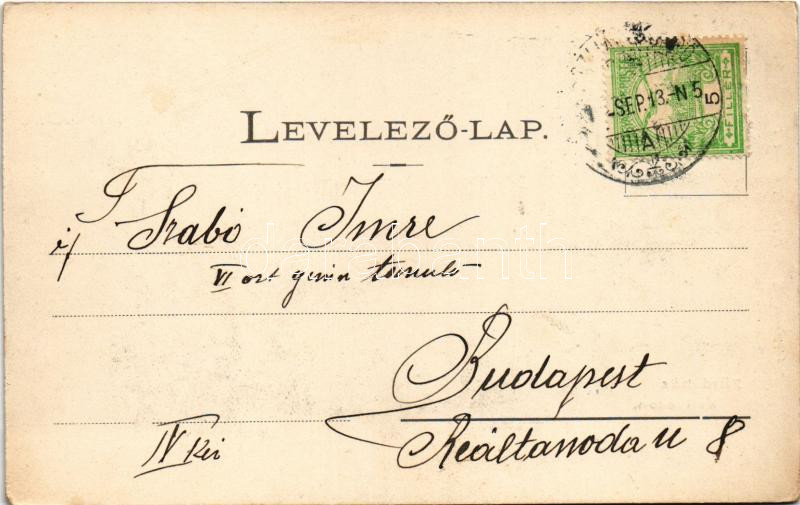 LEVELEZŐ-LAP.
SEP. 13. N 5
A
5
FILLÉR
T
if Szabó Imre
VI oszt gimn tanuló
Budapest
IV ker
Reáltanoda u 8